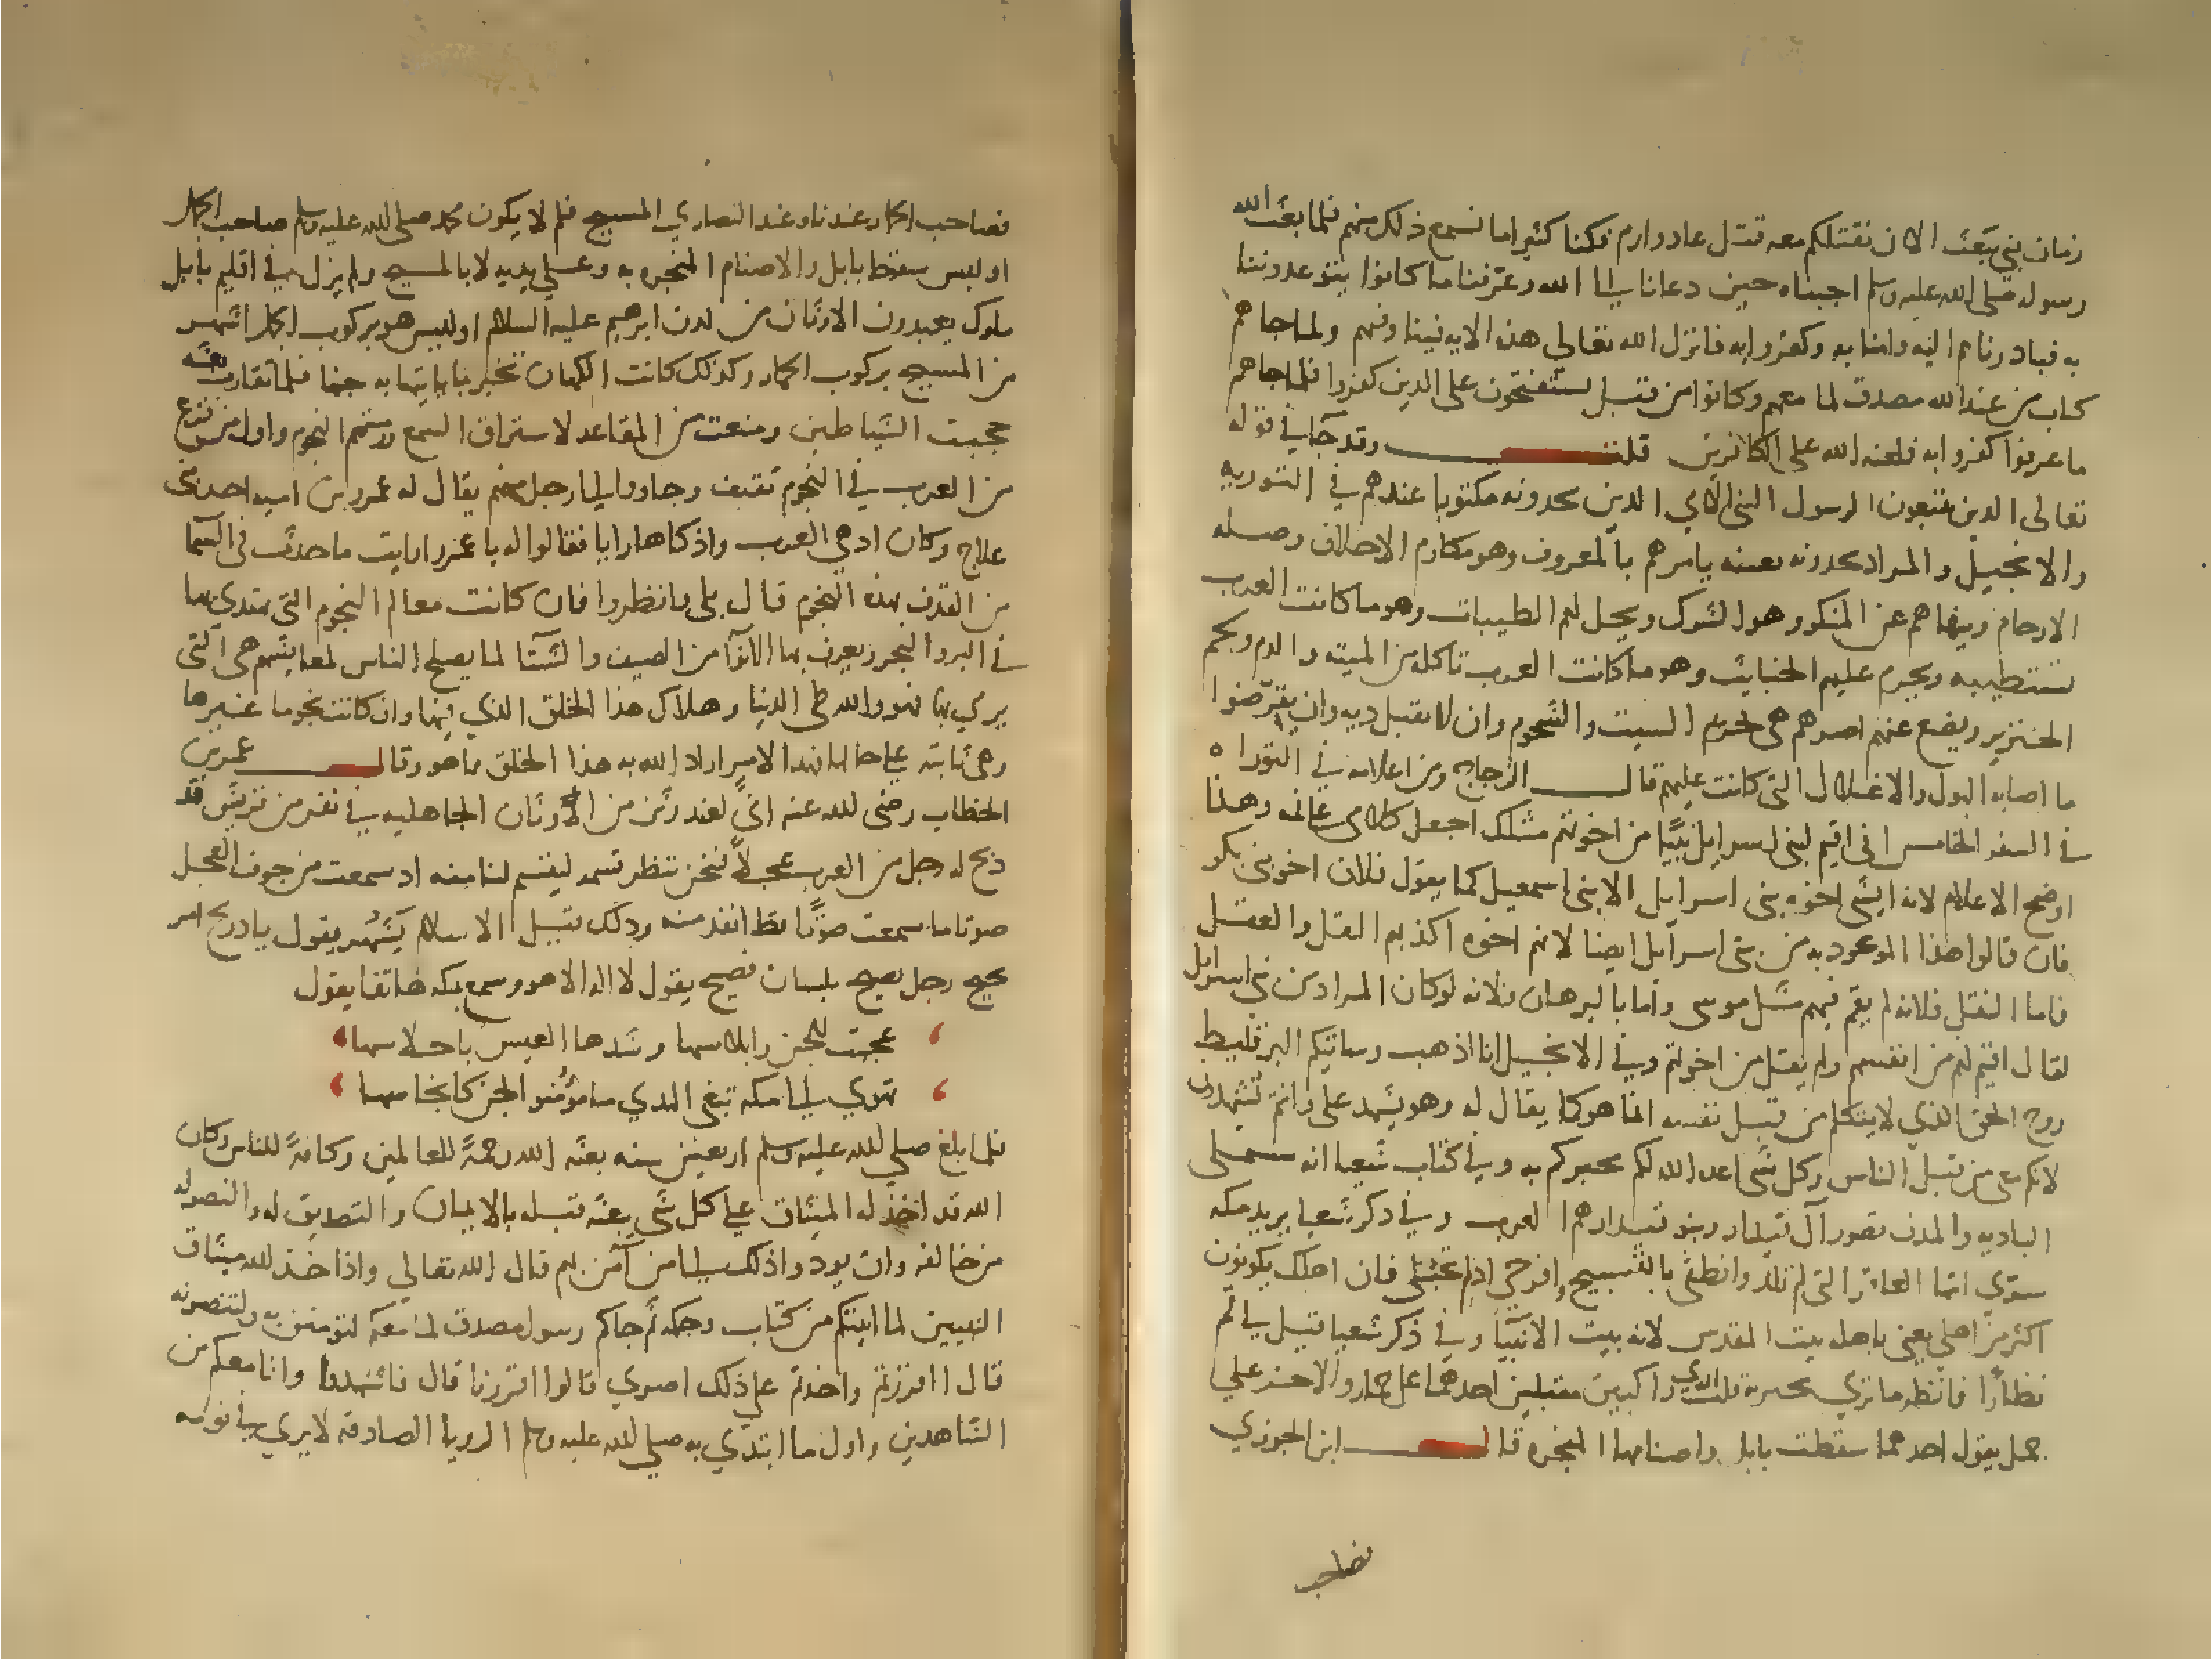 زمان نبي يبعث الان نقتلكم معه قتل عاد وارم فكنا كثيرا ما نسمع ذلك منهم فلما بعث الله
رسوله صلى الله عليه وسلم اجبناه حين دعانا الى الله وعرفنا ما كانوا يتوعدوننا
به فبادرناهم اليه وامنا به وكفروا به فانزل الله تعالى هذه الايه فينا وفيهم ولما جاهم
كتاب من عند الله مصدق لما معهم وكانوا من قبل يستفتحون على الذين كفروا فلما جاهم
ما عرفوا كفروا به فلعنه الله على الكافرين قلت وقد جا في قوله
تعالى الذين يتبعون الرسول النبي الامي الذين يجدونه مكتوبا عندهم في التوريه
والانجيل والمراد يجدونه بعينه يامرهم بالمعروف وهو مكارم الاخلاق وصله
الارحام وينهاهم عن المنكر وهو الشرك ويحل لهم الطيبات وهو ما كانت العرب
تستطيبه ويحرم عليهم الخبايث وهو ما كانت العرب تاكله من الميته والدم ولحم
الخنزير ويضع عنهم اصرهم هي تحريم السبت والشحوم وان لا تقبل ديه وان يقرضوا
ما اصابه البول والاغلال التي كانت عليهم قال الزجاج ومن اعلامه في التوراه
في السفر الخامس اني اقيم لبني اسرايل نبيا من اخوتهم مثلك اجعل كلامي على فمه وهذا
اوضح الاعلام لانه ايش اخوه بني اسرايل الا بني اسمعيل كما يقول فلان اخو بني بكر
فان قالوا هذا الموعود به من بني اسرايل ايضا لانهم اخوه اكذبهم النقل والعقل
فاما النقل فلانه لم يقم فيهم مثل موسى واما بالبرهان فلانه لو كان المراد من بني اسرايل
لقال اقيم لهم من انفسهم ولم يقل من اخوتهم وفي الانجيل انا اذهب وساتيكم البرقليط
روح الحق الذي لا يتكلم من قبل نفسه انما هو كما يقال له وهو يشهد علي وانتم تشهدون
لانكم معي من قبل الناس وكل شي اعد الله لكم يخبركم به وفي كتاب شعيا انه ستمتلى
الباديه والمدن قصور آل قيدار وبنو قيدار هم العرب وفي ذكر شعيا يريد مكه
سري ايتها العاقر التي لم تلد وانطقي بالتسبيح وافرحي اذ لم تحبلي فان اهلك يكونون
اكثر من اهلي يعني باهله بيت المقدس لانه بيت الانبيا وفي ذكر شعيا قيل لي قم
نظارا فانظر ما ترى تخبر به قلت ارى راكبين مقبلين احدهما على حمار والاخر على
جمل يقول احدهما سقطت بابل واصنامها المنجره قال ابن الجوزي
فصاحب
فصاحب الحمار عندنا وعند النصاري المسيح فلم لا يكون محمد صلى الله عليه وسلم صاحب الجمل
او ليس سقط بابل والاصنام المنجره به وعلى يديه لا بالمسيح ولم يزل في اقليم بابل
ملوك يعبدون الاوثان من لدن ابرهيم عليه السلام او ليس هو بركوب الجمل اشهر
من المسيح بركوب الحمار وكذلك كانت الكهان تخبر بما ياتيها به جنها فلما تقارب بعثه
حجبت الشياطين ومنعت من المقاعد لاستراق السمع ورمتهم النجوم واول من فزع
من العرب في النجوم ثقيف وجاووا الى رجل منهم يقال له عمرو بن اميه احد بني
علاج وكان ادهى العرب واذكاها رايا فقالوا له يا عمرو الم رايت ما حدث في السما
من القذف بهذه النجوم قال بلى فانظروا فان كانت معالم النجوم التي يهتدي بها
في البر والبحر ويعرف بها الانوآ من الصيف والشتا لما يصلح الناس لمعايشهم هي التي
يرمى بها فهو والله طي الدنيا وهلاك هذا الخلق الذي فيها وان كانت نجوما غيرها
وهي ثابته على حالها فهذا الامر اراد الله به هذا الخلق فما هو وقال عمر بن
الخطاب رضي الله عنه اني لعند وثن من الاوثان الجاهليه في نفر من قريش قد
ذبح له رجل من العرب عجلا فنحن ننتظر قسمه ليقسم لنا منه اذ سمعت من جوف العجل
صوتا ما سمعت صوتا قط انفذ منه وذلك قبيل الاسلام بشهر يقول يا ذريح امر
نجيح رجل يصيح بلسان فصيح يقول لا اله الا هو وسمع بمكه هاتفا يقول
عجبت للجن وابلاسها وشدها العيس باحلاسها
تهوي الى مكه تبغي الهدي ما مؤمنو الجن كانجاسها
فلما بلغ صلى الله عليه وسلم اربعين سنه بعثه الله رحمة للعالمين وكافة للناس وكان
الله قد اخذ له الميثاق على كل نبي بعثه قبله بالايمان والتصديق له والنصر له
من خالفه وان يودوا ذلك الى من آمن بهم قال الله تعالى واذ اخذ الله ميثاق
النبيين لما اتيتكم من كتاب وحكمه ثم جاكم رسول مصدق لما معكم لتومنن به ولتنصرنه
قال ااقررتم واخذتم على ذلكم اصري قالوا اقررنا قال فاشهدوا وانا معكم من
الشاهدين واول ما ابتدي به صلى الله عليه وسلم الرويا الصادقه لا يرى في نومه